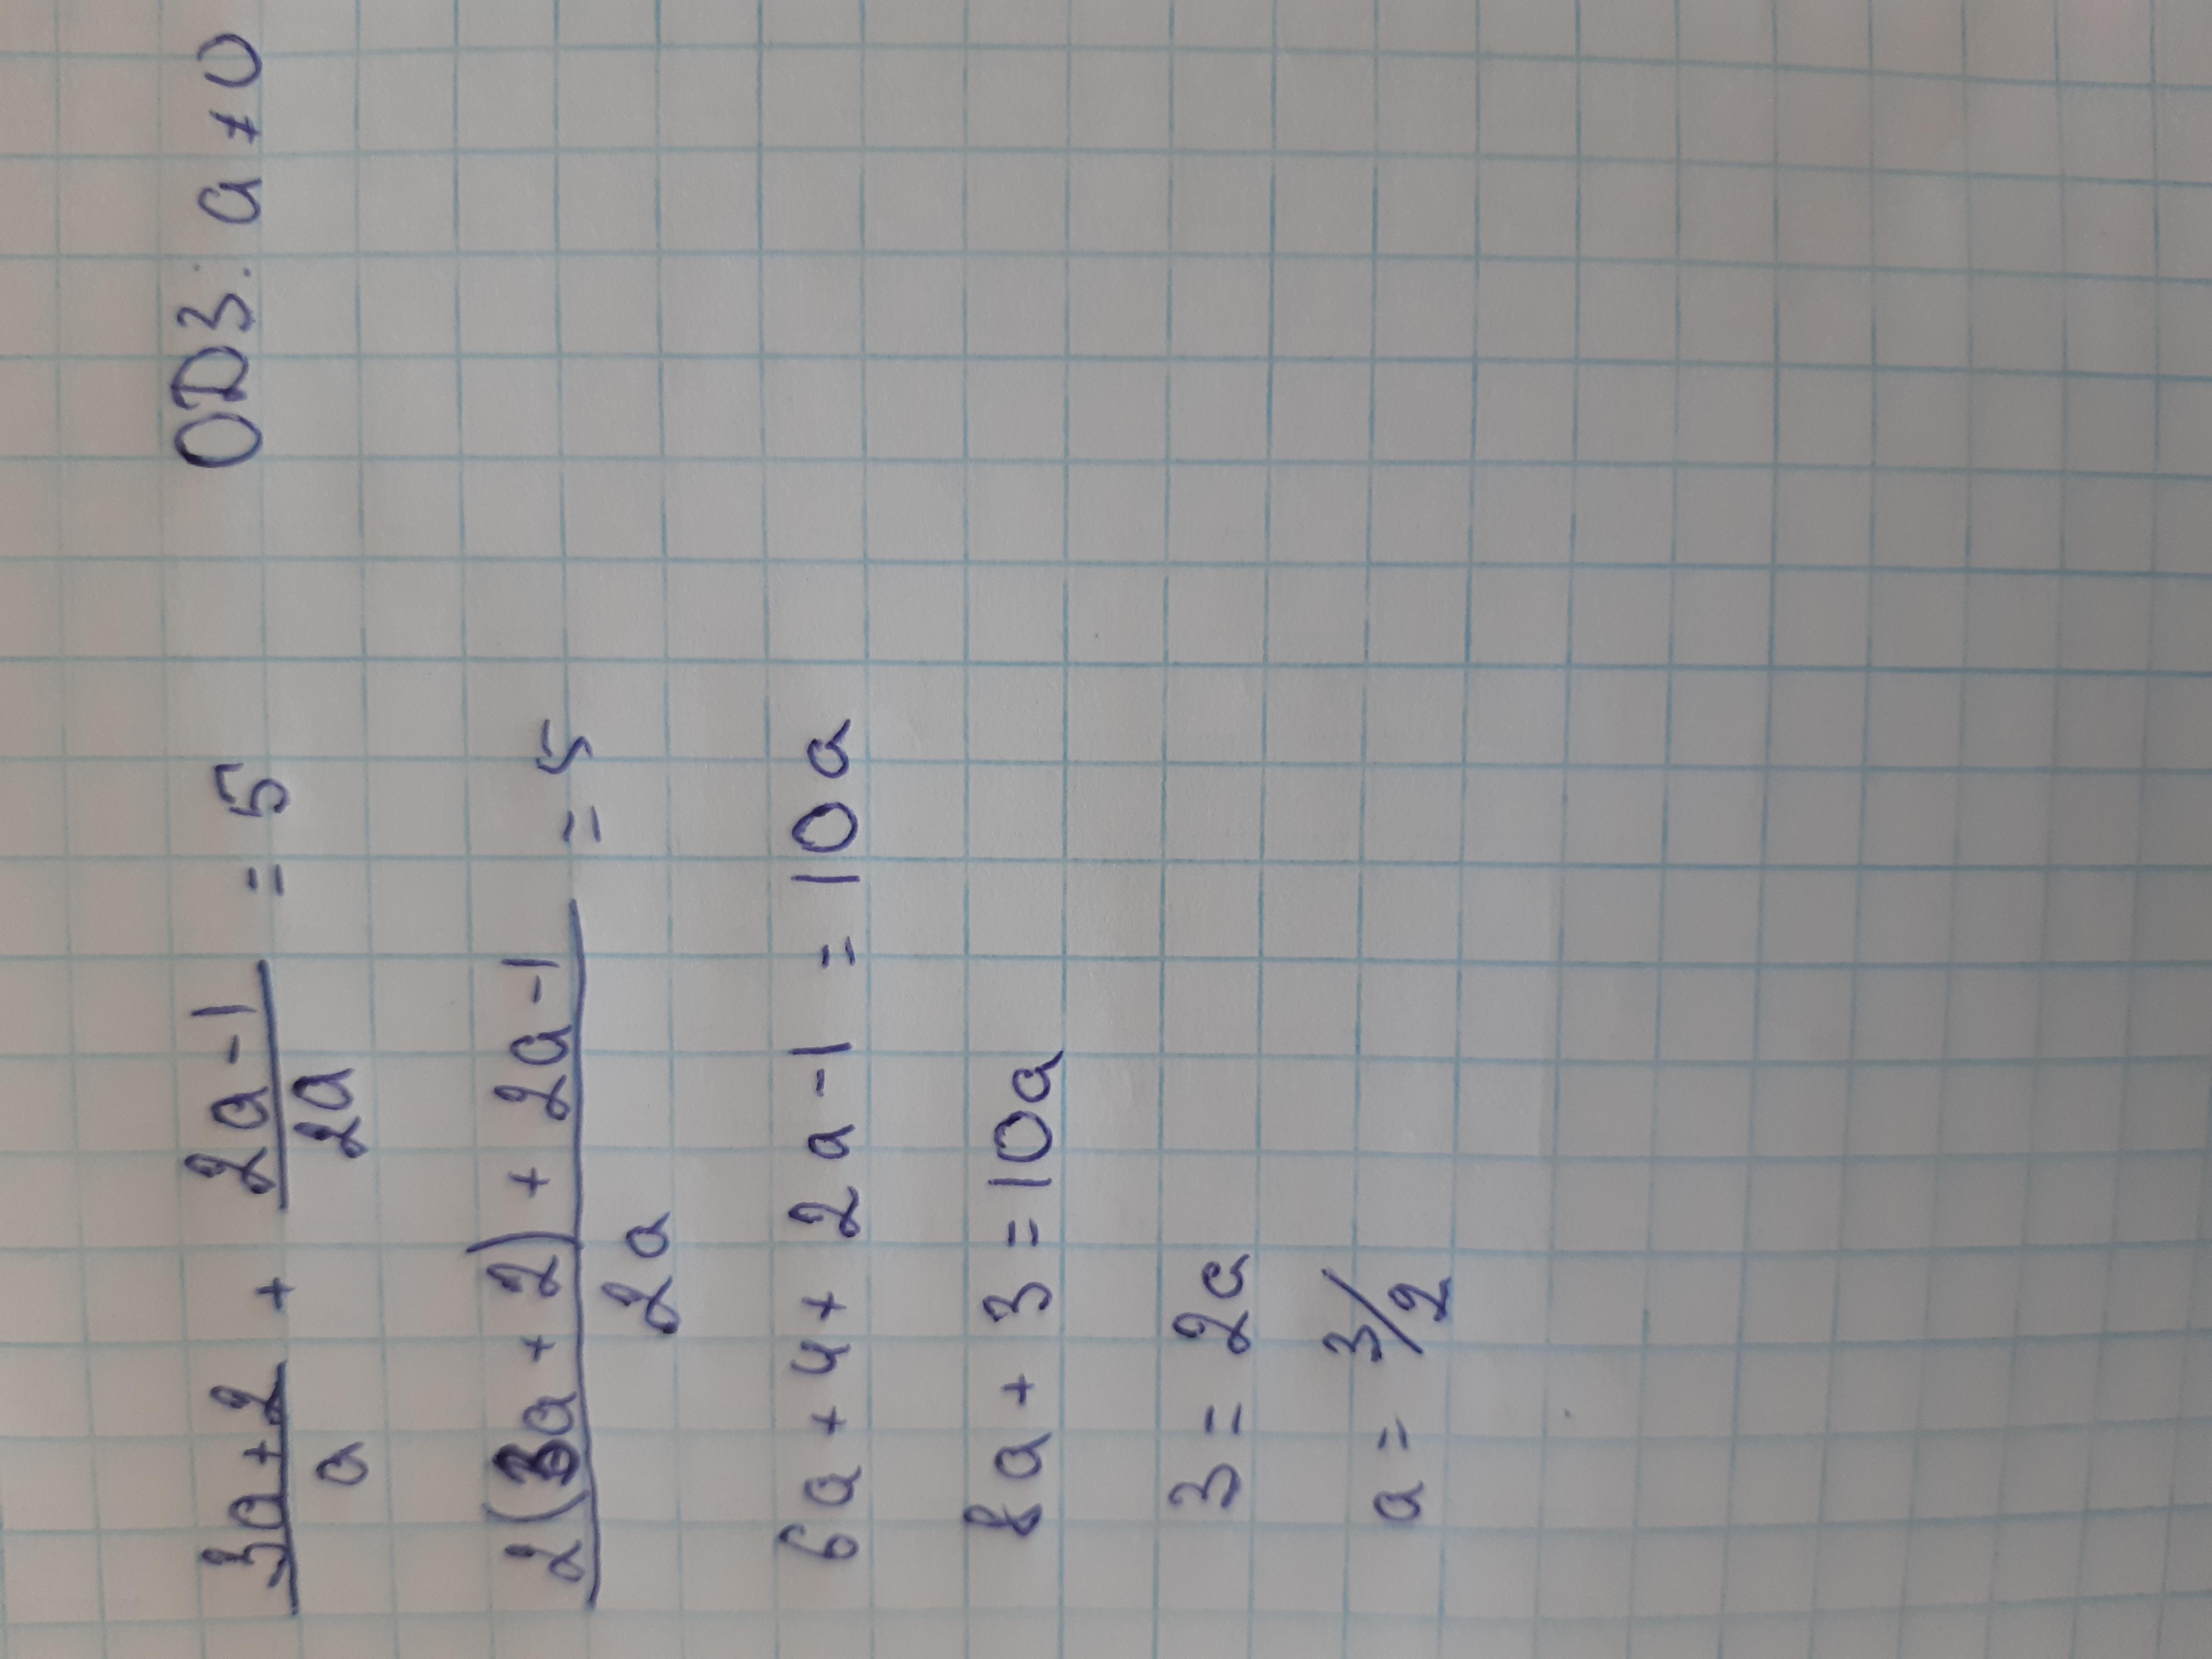 (3a+2)/a + (2a-1)/2a = 5 ОДЗ: a ≠ 0
(2(3a+2) + 2a-1)/2a = 5
6a+4+2a-1=10a
8a+3=10a
3=2a
a=3/2